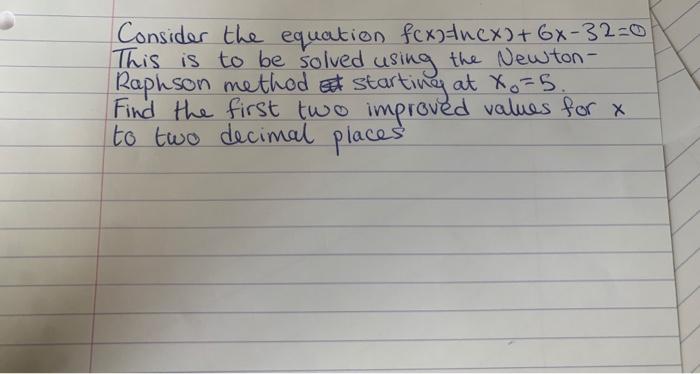 Consider the equation f(x)=ln(x)+6x-32=0
This is to be solved using the Newton-
Raphson method starting at x₀=5.
Find the first two improved values for x
to two decimal places